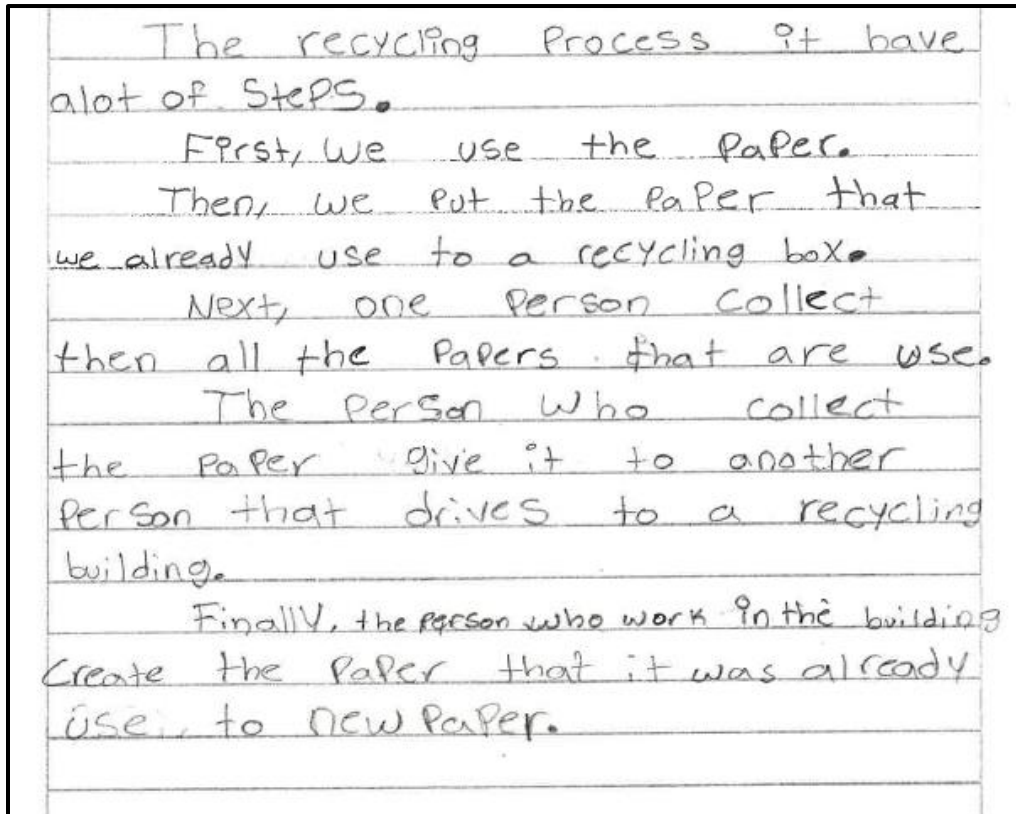 The recycling Process it have
alot of Steps.
First, we use the Paper.
Then, we Put the PaPer that
we already use to a recycling box.
Next, one Person Collect
then all the PaPers that are use.
The Person who collect
the PaPer give it to another
Person that drives to a recycling
building.
Finally, the person who work in the building
Create the PaPer that it was already
use to new PaPer.